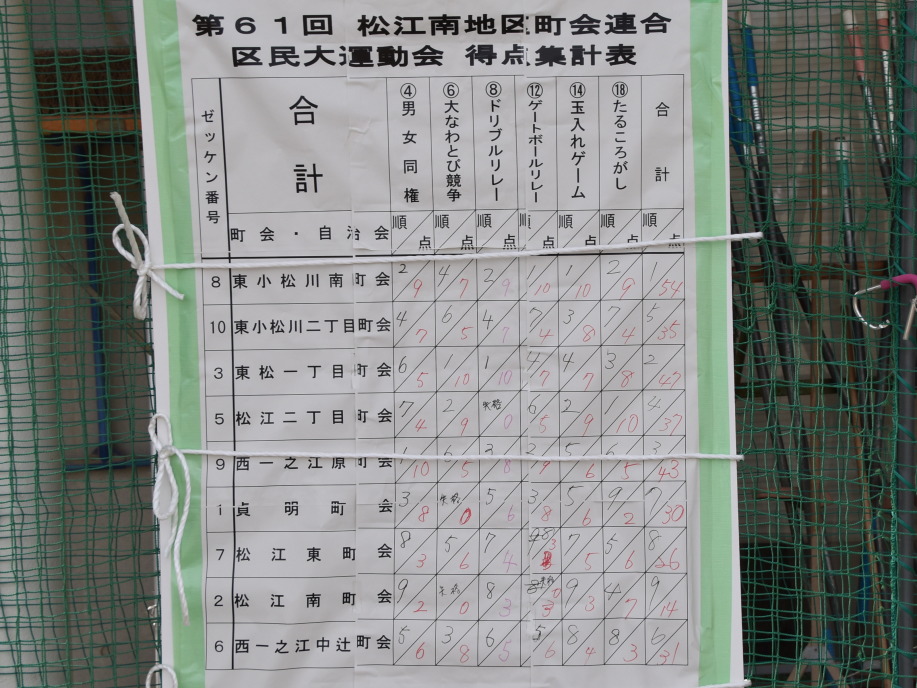 第６１回 松江南地区町会連合
区民大運動会 得点集計表
ゼッケン番号 合計 ④男女同権 ⑥大なわとび競争 ⑧ドリブルリレー ⑫ゲートボールリレー ⑭玉入れゲーム ⑱たるころがし 合計
町会・自治会 順 点 順 点 順 点 順 点 順 点 順 点 順 点
8 東小松川南町会 2 9 4 7 2 9 1 10 1 10 2 9 1 54
10 東小松川二丁目町会 4 7 6 5 4 7 7 4 3 8 7 4 5 35
3 東松一丁目町会 6 5 1 10 1 10 4 7 4 7 3 8 2 47
5 松江二丁目町会 7 4 2 9 失格 0 6 5 2 9 1 10 4 37
9 西一之江原町会 10 6 5 3 8 2 9 5 6 6 5 3 43
1 貞明町会 3 8 失格 0 5 6 3 8 5 6 9 2 7 30
7 松江東町会 8 3 5 6 7 4 8 3 7 5 5 6 8 26
2 松江南町会 9 2 失格 0 8 3 失格 0 9 3 4 7 9 14
6 西一之江中辻町会 5 6 3 8 6 5 5 6 8 4 8 3 6 31